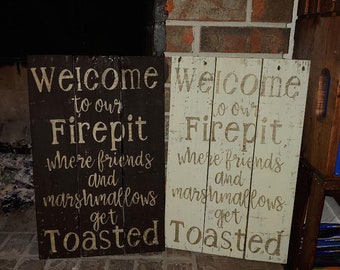 Welcome
to our
Firepit
where friends
and
marshmallows
get
Toasted
Welcome
to our
Firepit
where friends
and
marshmallows
get
Toasted